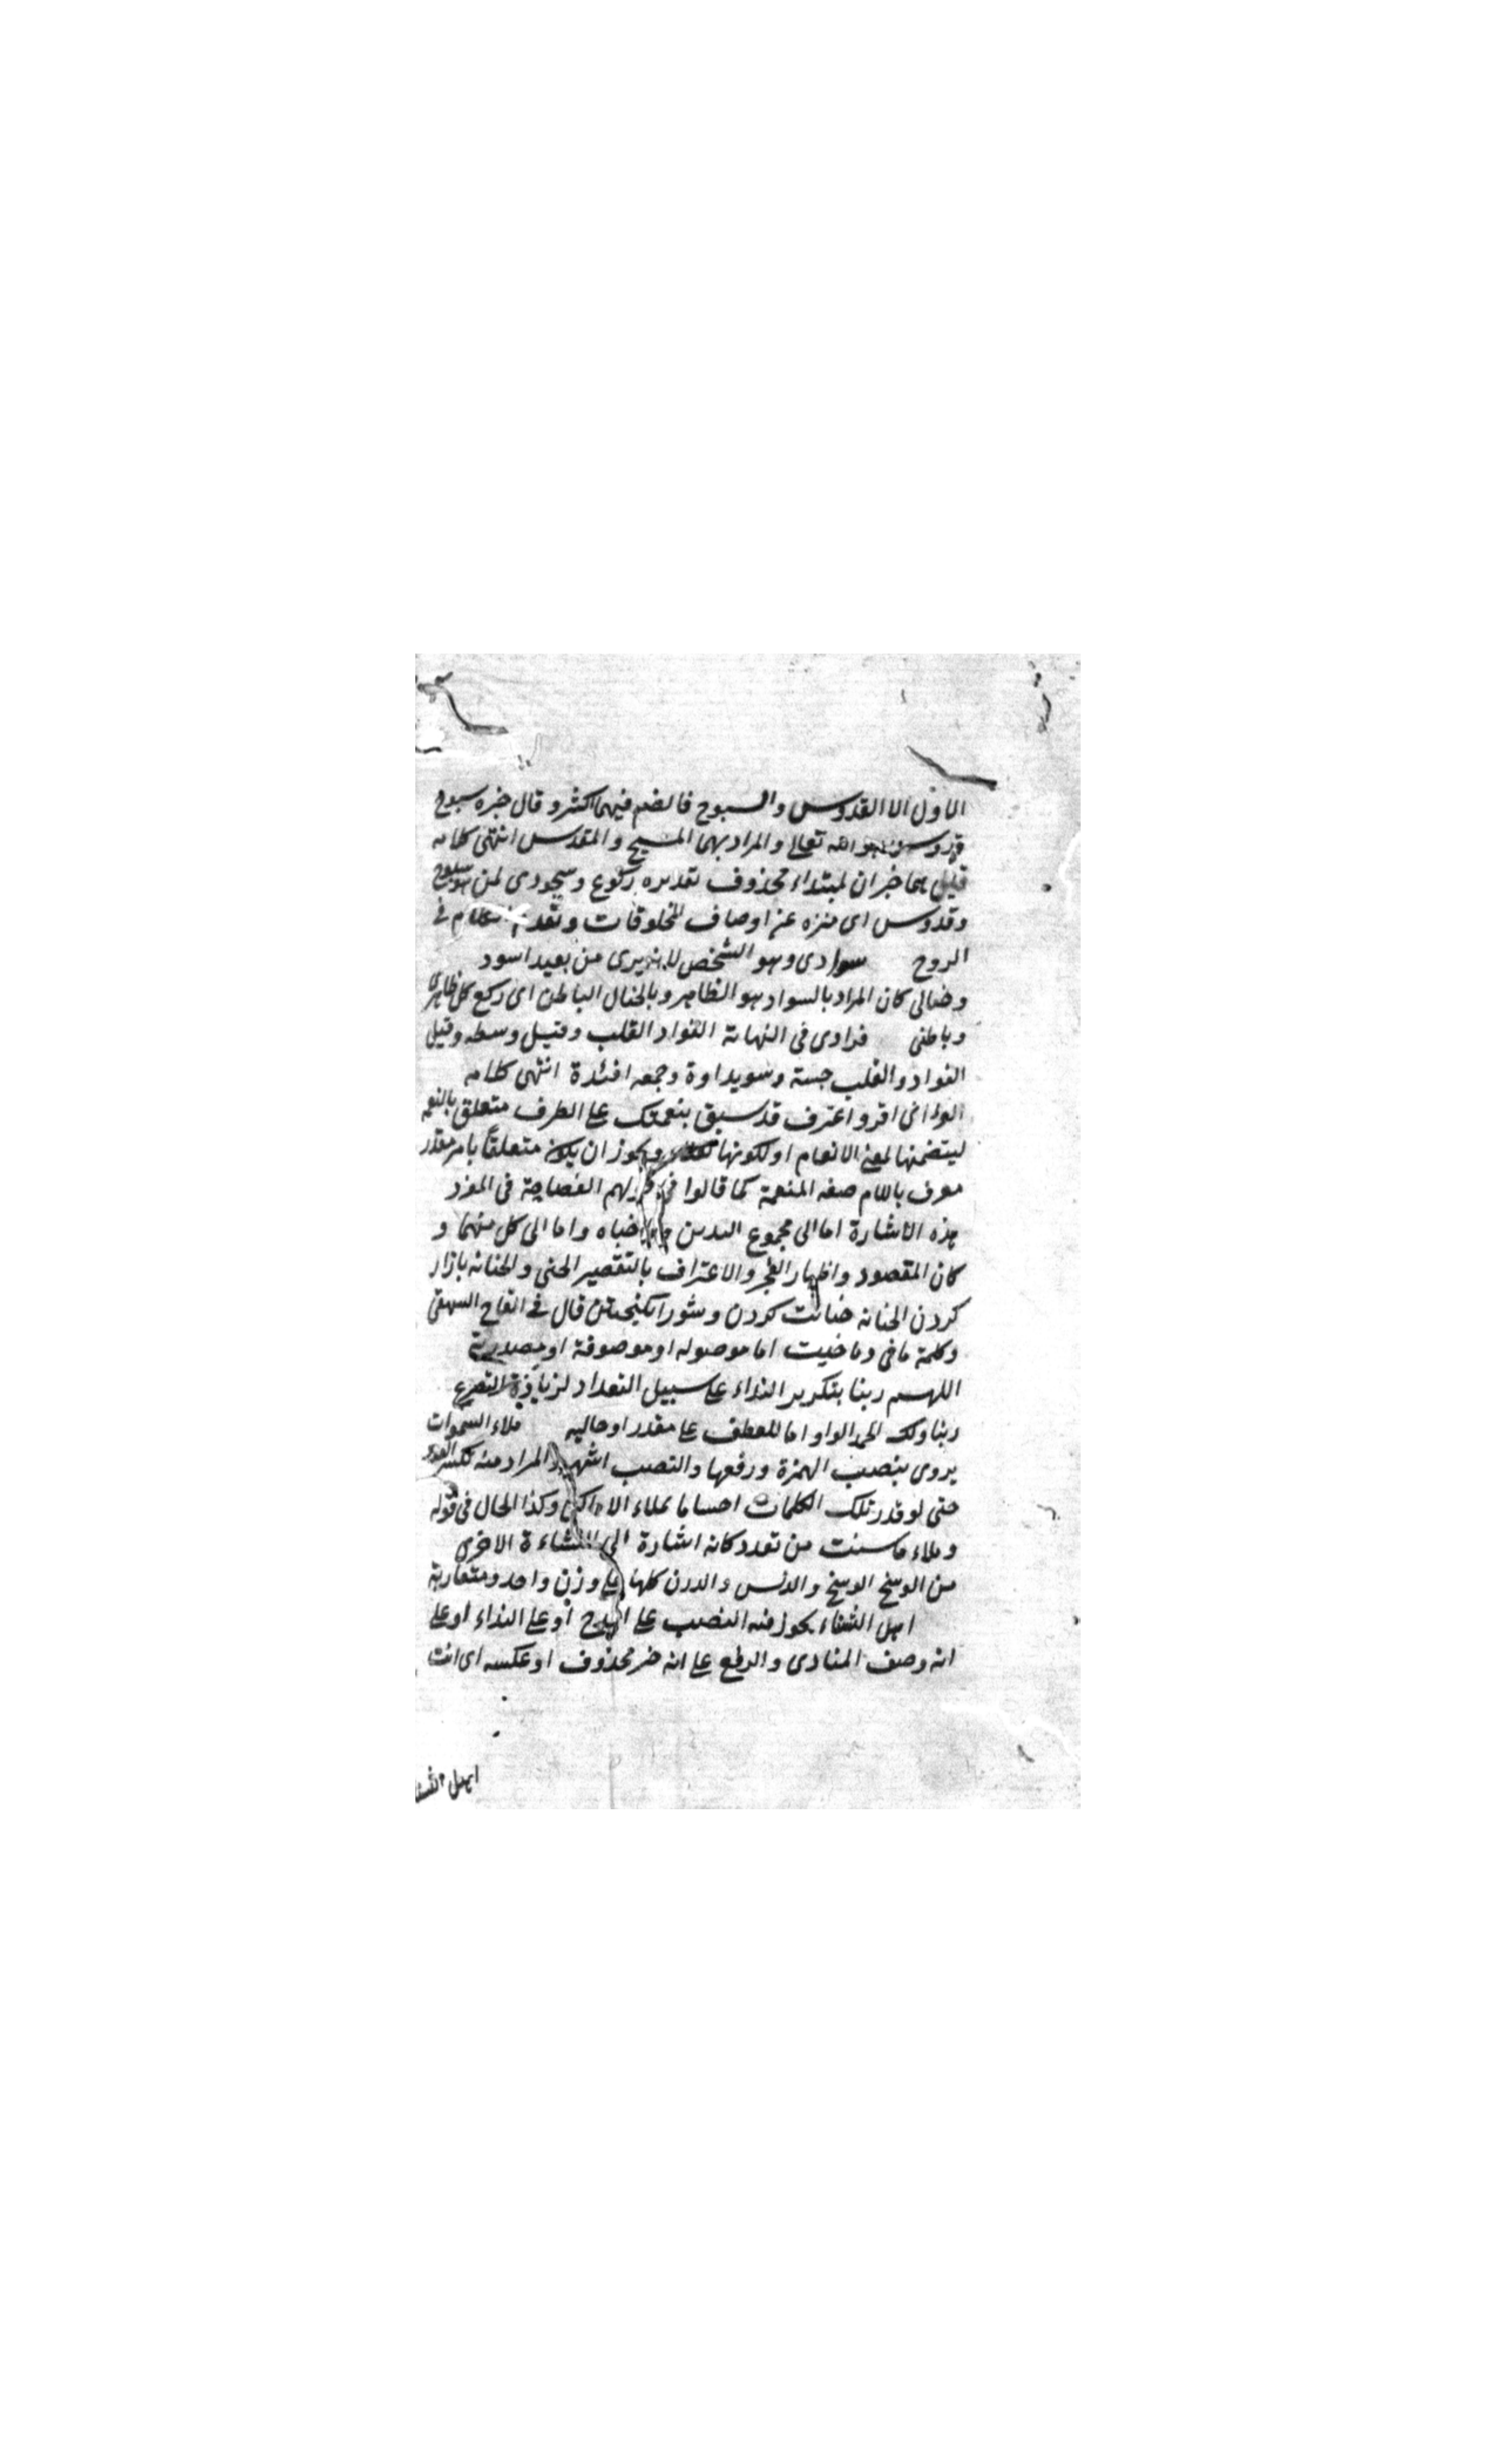 الاول الا القدوس والسبوح فالضم فيهما اكثر وقال خبره سبوح
قدوس هو الله تعالى والمراد بهما المسبح والمقدس انتهى كلامه
قيل هما خبران لمبتداء محذوف تقديره ركوعي وسجودي لمن هو سبوح
وقدوس اى منزه عن اوصاف المخلوقات وتقدم الكلام في
الروح سوادى وهو الشخص يرى من بعيد اسود
وخيالى كان المراد بالسواد هو الظاهر وبالخيال الباطن اى ركع كل ظاهرى
وباطنى فوادى فى النهاية الفواد القلب وقيل وسطه وقيل
الفواد والقلب حبته وسويداوة وجمعه افئدة انتهى كلامه
ابوء انى اقر واعترف قد سبق بنعمتك على الظرف متعلق بالنعمة
ليتضمنها لمعنى الانعام او لكونها ويجوز ان يكون متعلقاً بامر مقدر
معرف باللام صفه المنعمة كما قالوا فى قولهم الفصاحة فى المفرد
هذه الاشارة اما الى مجموع اليدين وما جنياه واما الى كل منهما و
كان المقصود واظهار العجز والاعتراف بالتقصير الجنى والجنايه بازار
كردن الجنايه جنايت كردن وشور انكيختن قال فى التاج البيهقى
وكلمة ما فى وما جنيت اما موصوله او موصوفة او مصدرية
اللهم ربنا بتكرير النداء على سبيل التعداد لزيادة التضرع
ربنا ولك الحمد الواو اما للعطف على مقدر او حاليه ملاء السموات
يروى بنصب الهمزة ورفعها والنصب اشهر والمراد منه تكثير العدد
حتى لو قدر تلك الكلمات اجساما يملاء الاماكن وكذا الحال فى قوله
وملاء ما شئت من بعد وكانه اشارة الى النشاءة الاخرى
من الوسخ الوسخ والدنس والدرن كلها على وزن واحد ومتقاربة
اهل الثناء يجوز فيه النصب على المدح او على النداء او على
انه وصف المنادى والرفع على انه خبر محذوف او عكسه اى انت
اهل الثناء